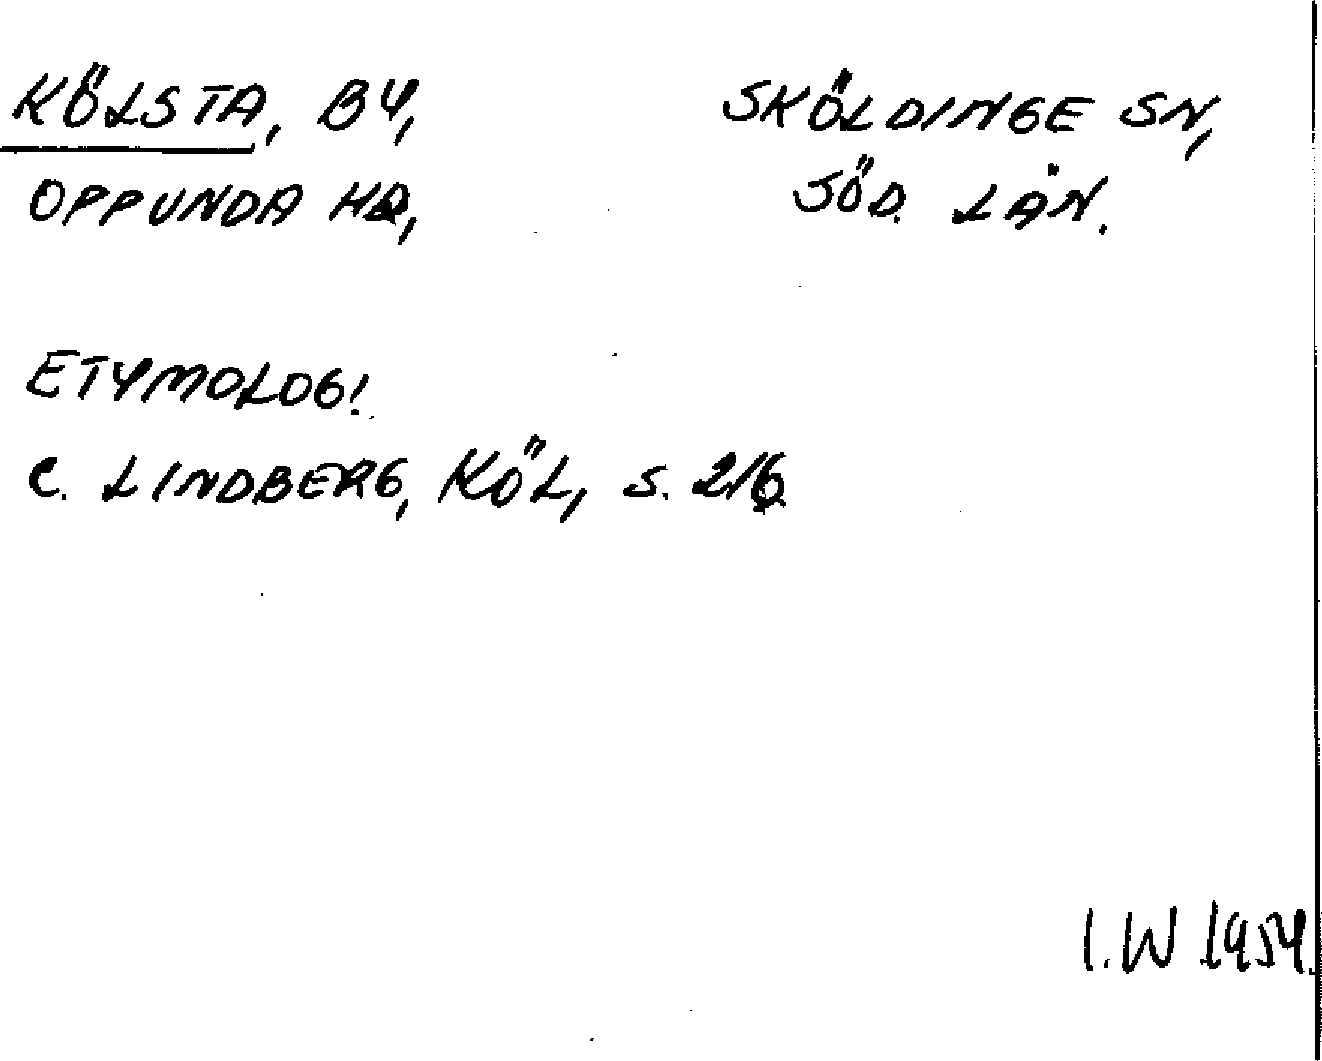 KÖLSTA, BY, SKÖLDINGE SN,
OPPUNDA HD, SÖD. LÄN.
ETYMOLOGI.
C. LINDBERG, KÖL, S. 216.
I.W 1954.